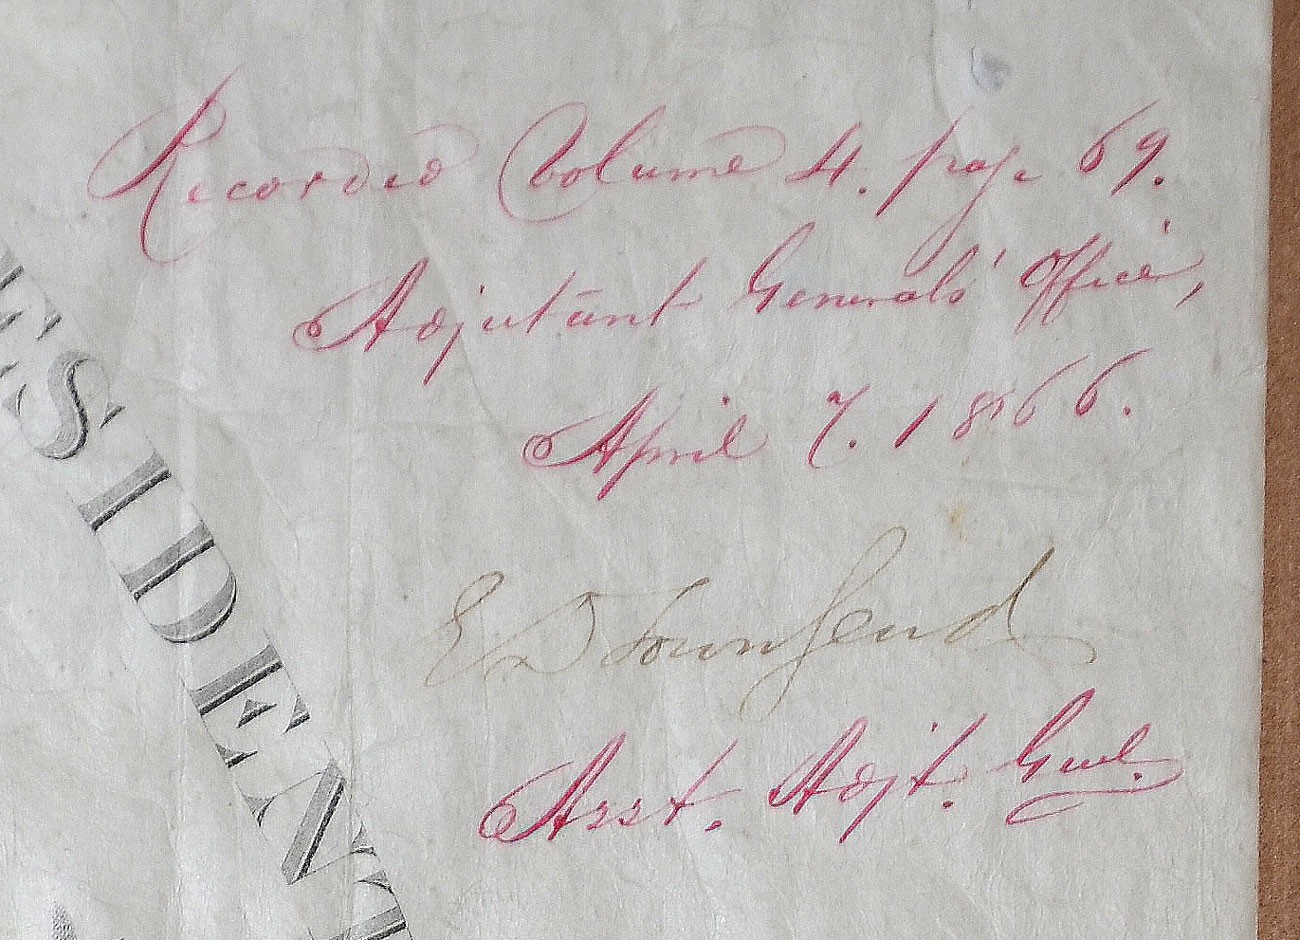 Recorded Volume 4. page 69.
Adjutant General's Office,
April 7. 1866.
E D Townsend
Asst. Adjt. Genl.
ESIDENT